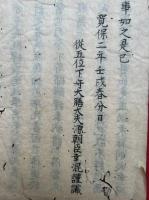 事如之是已
寛保二年壬戌春分日
従五位下守大膳大夫源朝臣重混謹識